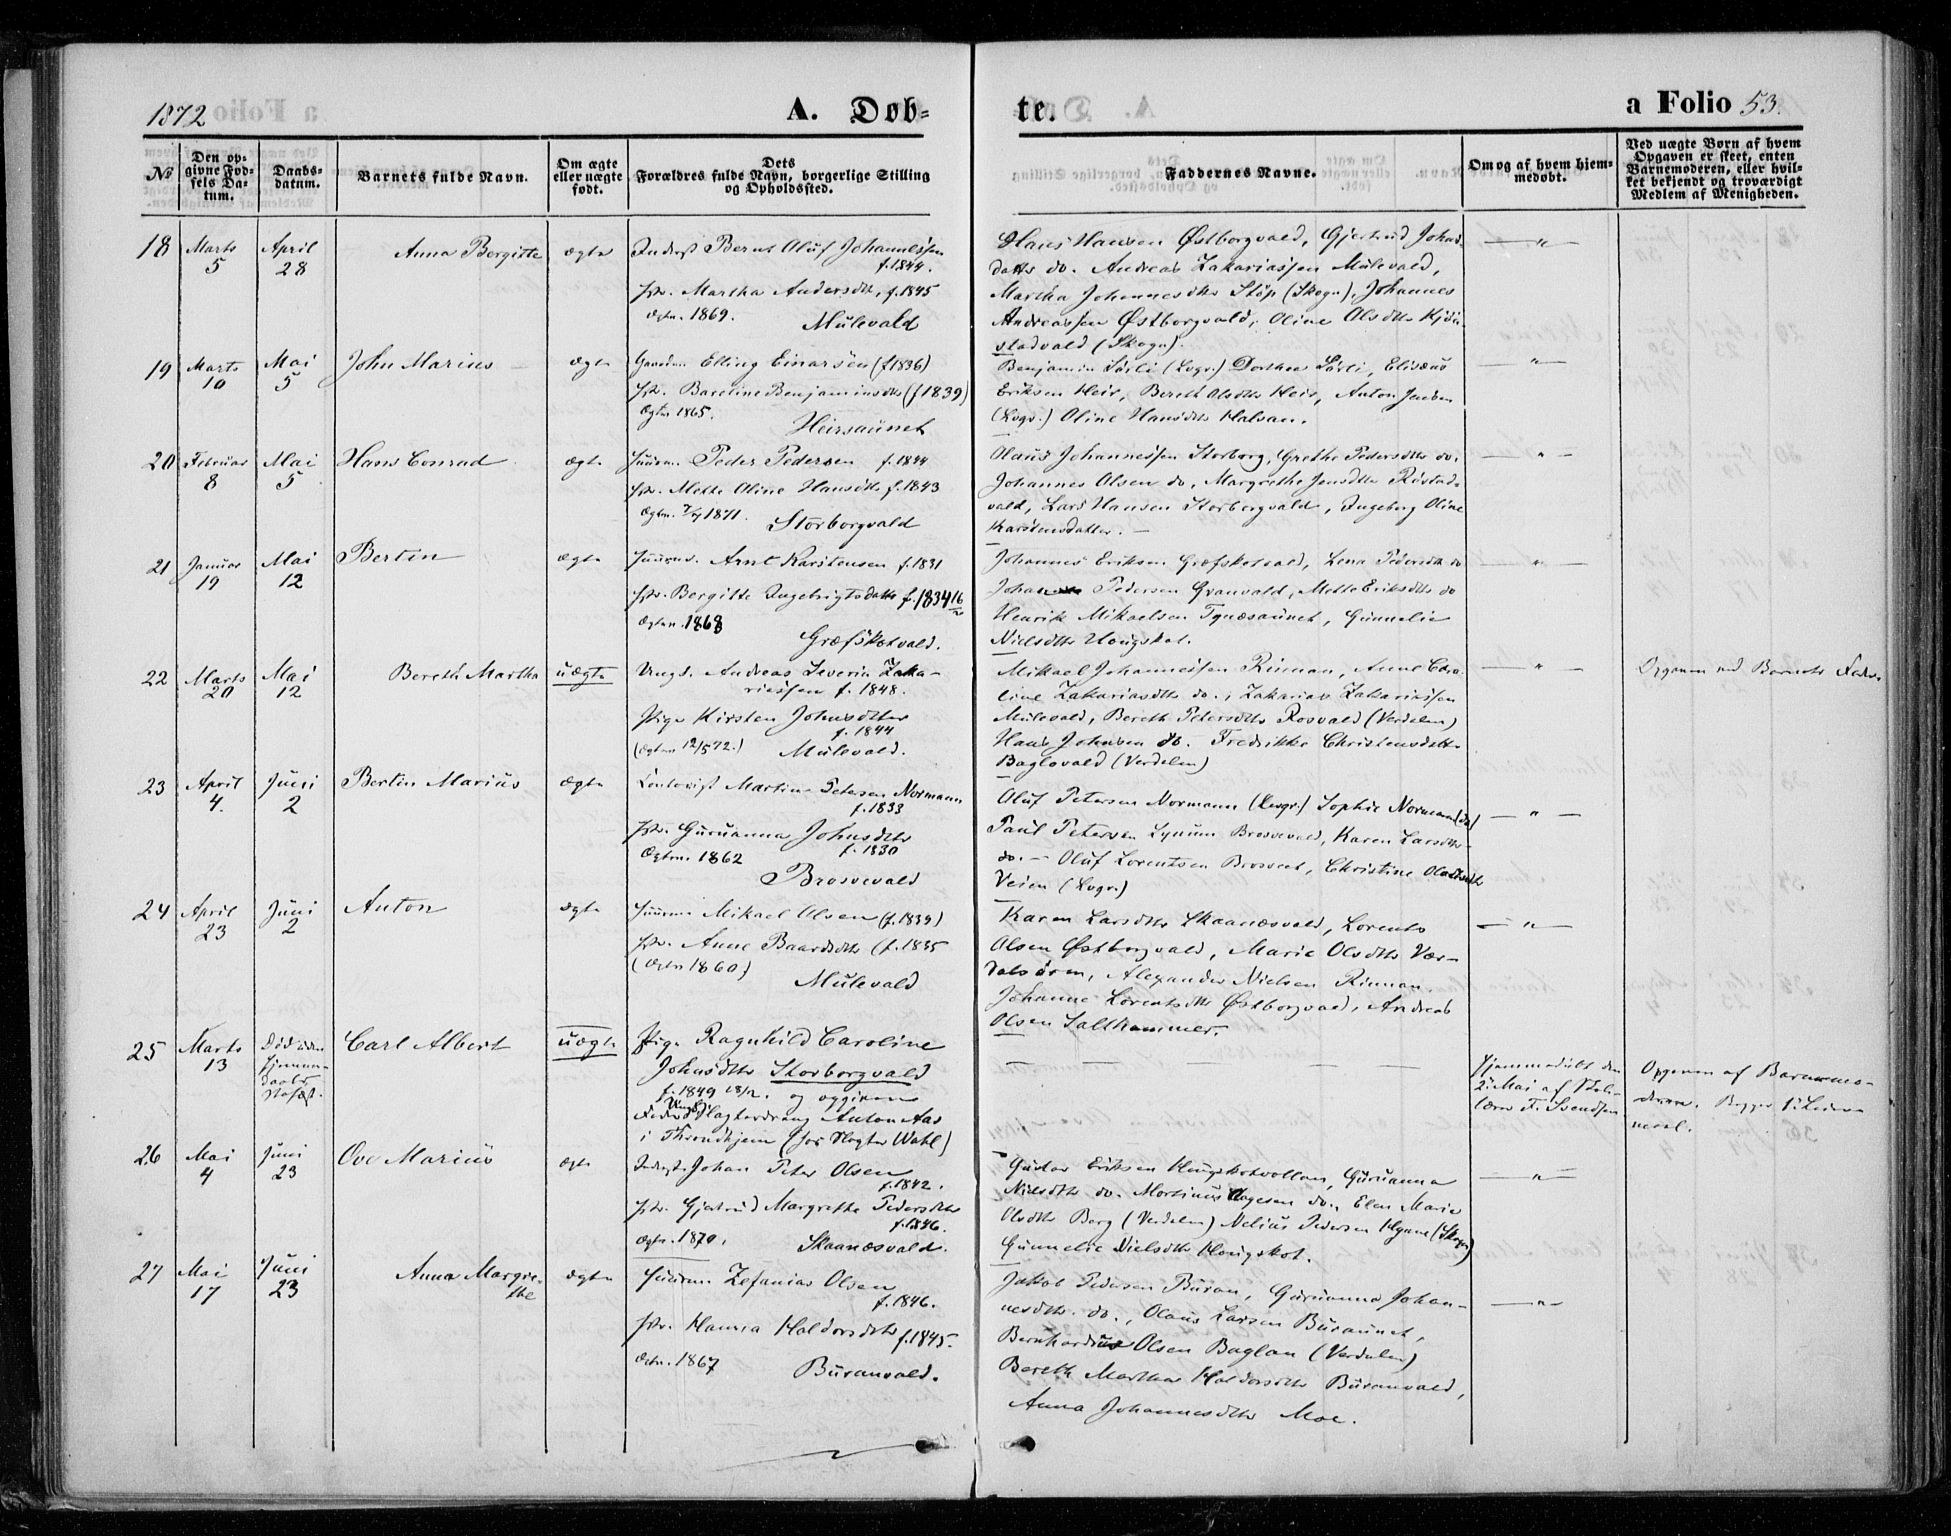 1872
A. Døb-
te.
a Folio 53.
No
Den op-
givne Fød-
sels Da-
tum.
Daabs-
datum.
Barnets fulde Navn.
Om ægte
eller uægte
født.
Dets
Forældres fulde Navn, borgerlige Stilling
og Opholdssted.
Faddernes Navne.
Om og af hvem hjem-
medøbt.
Ved uægte Børn af hvem
Opgaven er skeet, enten
Barnemoderen, eller hvil-
ket bekjendt og troværdigt
Medlem af Menigheden.
18 Marts 5 April 28 Anna Bergitte ægte
Inderst Bernt Oluf Johannessen
f. 1844.
Martha Andersdtr, f. 1845
Ægtev. 1869. Mulevald
Hans Hansen Østborgvald, Gjertrud Johns-
datter do. Andreas Zakariassen Mulevald,
Martha Johannesdtr Støp (Skogn), Johannes
Andreassen Østborgvald, Oline Olsdtr
stadvald (Skogn).
19 Marts 10 Mai 5 John Marius ægte
Elling Einarsen (f 1836)
Bareline Benjaminsdtr (f 1839)
Ægtev 1865.
Heirsaunet
Benjamin Sørli (Xvgr.) Dorthea Sørli, Elisæus
Eriksen Heir, Bereth Olsdtr Heir, Anton Jensen
(Xvgr.) Oline Hansdtr Halsan.
20 Februar 8 Mai 5 Hans Conrad ægte
Huusm. Peder Pedersen f. 1844
Mette Oline Hansdtr f. 1843
Ægtev. 1871. Storborgvald
Johannessen Storborg, Grethe Pedersdtr do.
Johannes Olsen do, Margrethe Jensdtr Røstad-
vald, Lars Hansen Storborgvald, Ingeborg Oline
Karstensdatter. —
21 Januar 19 Mai 12 Bertin ægte
Arnt Karstensen f. 1831
Bergitte Ingebrigtsdatter f. 1834
Ægtev. 1868
Græfsketvald.
Johannes Eriksen Græfsketvald, Lena Pedersdtr do
Johan Pedersen Granvald, Mette Eriksdtr do
Henrik Mikaelsen Tynæsaunet, Gunnelie
Nielsdtr Hougskot.
22 Marts 20 Mai 12 Bereth Martha uægte
Ungk. Andreas Severin Zaka-
riassen f. 1848.
Pige Kirsten Johnsdtr
f. 1844
(Ægtev 12/5 72.) Mulevald.
Mikael Johannessen Rinnan, Anne Caro-
line Zakariasdtr do., Zakarias Zakariassen
Mulevald, Bereth Petersdtr Rosvald (Verdalen)
Hans Johnsen do. Fredrikke Christensdatter
Baglovald (Verdalen)
Opgaven ved Barnets Fader
23 April 4. Juni 2 Bertin Marius ægte
Martin Petersen Normann
f. 1833
Guruanna Johnsdtr
f. 1830
Ægtev. 1862
Brosvevald
Oluf Petersen Normann (Levgr.) Sophie Normann (do)
Paul Petersen Lynum Brosvevald, Karen Larsdtr
do. — Oluf Lorentsen Brosveet, Christine
Veien (Xvgr.)
24 April 23 Juni 2 Anton ægte
Huusm Mikael Olsen (f. 1839)
Anne Baardsdtr (f. 1835
(Ægtev 1860)
Mulevald
Karen Larsdtr Skaanæsvald, Lorents
Olsen Østborgvald, Marie Olsdtr Vær-
dalsøren, Alexander Nielsen Rinnan.
Johanne Lorentsdtr Østborgvald, Andreas
Olsen Salthammer.
25 Marts 13 Død inden
Hjemme-
daabs
Stafæst. Carl Albert uægte
Pige Ragnhild Caroline
Johnsdtr Storborgvald
f. 1849 og opgiven
Fader Ungk. Slagterdreng Anton Aas
i Throndhjem (hos Slagter Wahl)
Hjemmedøbt den
2 Mai af Skole-
lærer T. Svendsen
Opgaven af Barnemo-
deren. Begges 1. Leier-
maal.
26 Mai 4 Juni 23 Ove Marius ægte
Inderst Johan Peter Olsen
f. 1842.
Gjertrud Margrethe Pedersdtr
f. 1846.
Ægtev. 1870. Skaanæsvald.
Gustav Eriksen Hougskotvollen, Guruanna
Nielsdtr do. Mortinus Aagesen do., Elen Marie
Olsdtr Berg (Verdalen) Nelius Pedersen Hynne (Skogn)
Gunnelie Nielsdtr Hougskot.
27 Mai 17 Juni 23 Anna Margre-
the ægte
Huusm Zefanias Olsen
f. 1846.
Hanna Haldorsdtr f. 1845.
Ægtev. 1867 Buranvald.
Jakob Pedersen Buran, Guruanna Johan-
nesdtr. do., Olaus Larsen Buraunet,
Bernhardus Olsen Baglan (Verdalen)
Bereth Martha Haldorsdtr Buranvald,
Anna Johannesdtr Moe.